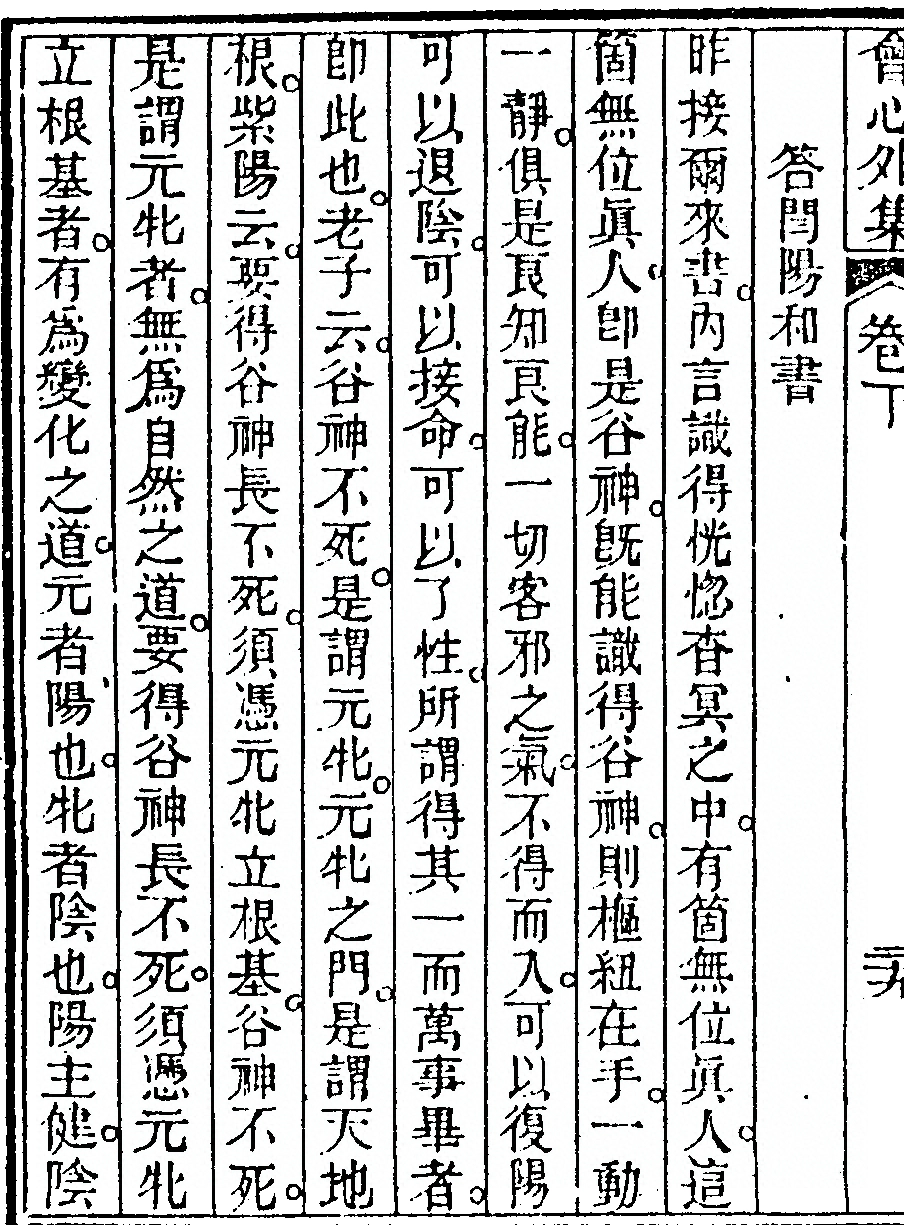 會心外集 卷下
答閆陽和書
昨接爾來書。內言識得恍惚杳冥之中。有箇無位眞人。這
箇無位眞人。卽是谷神。旣能識得谷神。則樞紐在手。一動
一靜。俱是良知良能。一切客邪之氣。不得而入。可以復陽
可以退陰。可以接命。可以了性。所謂得其一而萬事畢者。
卽此也。老子云。谷神不死。是謂元牝。元牝之門。是謂天地
根。紫陽云。要得谷神長不死。須憑元牝立根基。谷神不死。
是謂元牝者。無爲自然之道。要得谷神長不死。須憑元牝
立根基者。有爲變化之道。元者陽也。牝者陰也。陽主健。陰